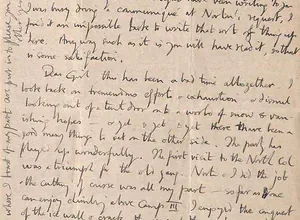 been writing to you
I was busy doing a communiqué at Norton's request, I
find it an impossible task to write that sort of thing up
here. Anyway such as it is you will have read it,
to some satisfaction.
Dear Girl this has been a bad time altogether. I
look back on tremendous efforts & exhaustion & dismal
looking out of a tent door out a world of snow &
vanishing hopes – & yet & yet & yet there have been a
good many things to set on the other side. The party has
played up wonderfully. The first visit to the North Col
was a triumph for the old gang. Norton & I did the job
& the cutting of course was all my part – so far as one
can enjoy climbing above Camp III I enjoyed the conquest
of the ice wall & crack